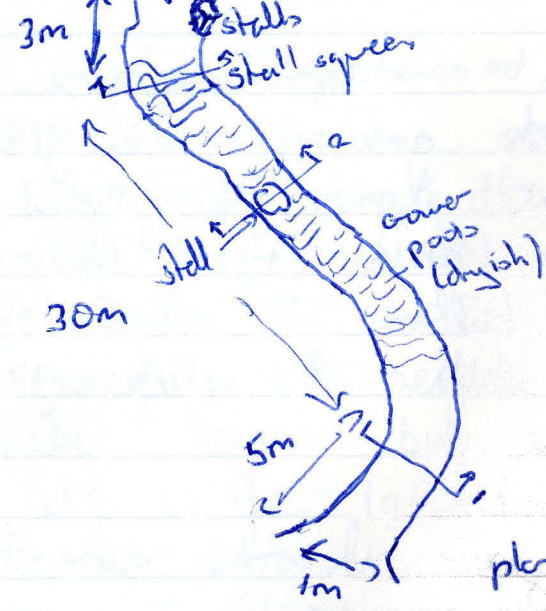 3m
stalls
stall squeeze
2
gower
pools
(dryish)
stall
30m
5m
1
1m
plan